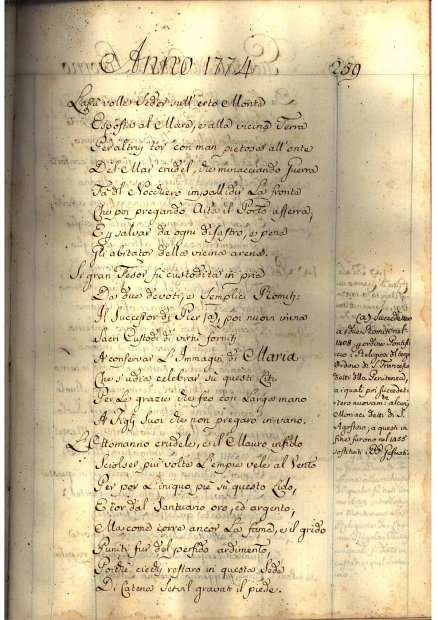 Anno 1774
259
Lassù volle seder sull'erto Monte
Esposta al Mare, e alla vicina Terra
Per altrui tor con man pietosa all'onte
Del Mar crudel, che minacciando guerra
Fa al Nocchiero impallidir La fronte
Che poi pregando Aita il Porto afferra,
E salvar da ogni disastro, e pena
Gli abitator della vicina arena.
Sì gran Tesor fu custodito in pria
Da due devoti, e semplici Romiti:
Il Successor di Pier (a), poi nuovi invia
Sacri Custodi di virtù forniti
A conservar L'Immagin di Maria
Che s'udia celebrar su questi Liti
Per Le grazie che feo con Larga mano
A Figli Suoi che non pregaro invano.
L'Ottomanno crudele, e il Mauro infido
Sciolser più volte L'empie vele al Vento
Per por L'iniquo piè su questo Lido,
E tor dal Santuario oro, ed argento,
Ma come corre ancor La fama, e il grido
Puniti fur del perfido ardimento,
Poichè ciechi restaro in questa Sede
Di Catena servil gravati il piede.
(a) Succedero
a i due Romiti nel
1408, d'ordine Pontifi
cio i Religiosi del terzo
Ordine di S. Francesco
detti della Penitenza,
a i quali poi succedet-
tero nuovam: alcuni
Monaci detti di S.
Agostino, a questi in
fine furono nel 1455
sostituiti i Gesuati.